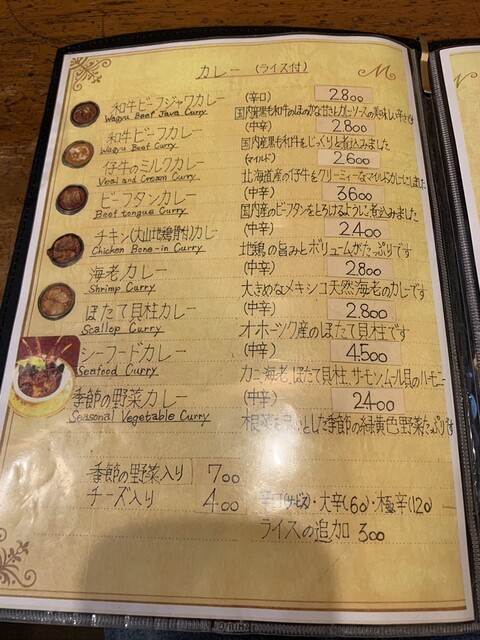 カレー (ライス付)
和牛ビーフジャワカレー (辛口) 2.800
Wagyu Beef Java Curry
和牛ビーフカレー (中辛) 2.800
Wagyu Beef Curry 国内産黒毛和牛をじっくりと煮込みました
仔牛のミルクカレー (マイルド) 2.600
Veal and Cream Curry 北海道産の仔牛をクリーミィーなマイルドカレーにしました
ビーフタンカレー (中辛) 3600
Beef tongue Curry 国内産のビーフタンをとろけるように煮込みました
チキン(大山地鶏骨付)カレー (中辛) 2.400
Chicken Bone-in Curry 地鶏の旨みとボリュームがたっぷりです
海老カレー (中辛) 2.800
Shrimp Curry 大きめなメキシコ天然海老のカレーです
ほたて貝柱カレー (中辛) 2.800
Scallop Curry オホーツク産のほたて貝柱です
シーフードカレー (中辛) 4.500
Seafood Curry カニ、海老、ほたて貝柱、サーモン、ムール貝のハーモニー
季節の野菜カレー (中辛) 2.400
Seasonal Vegetable Curry とした季節の緑黄色野菜たっぷりです
季節の野菜入り 700
チーズ入り 400 辛口(サービス)・大辛(60)・極辛(120)
ライスの追加 300